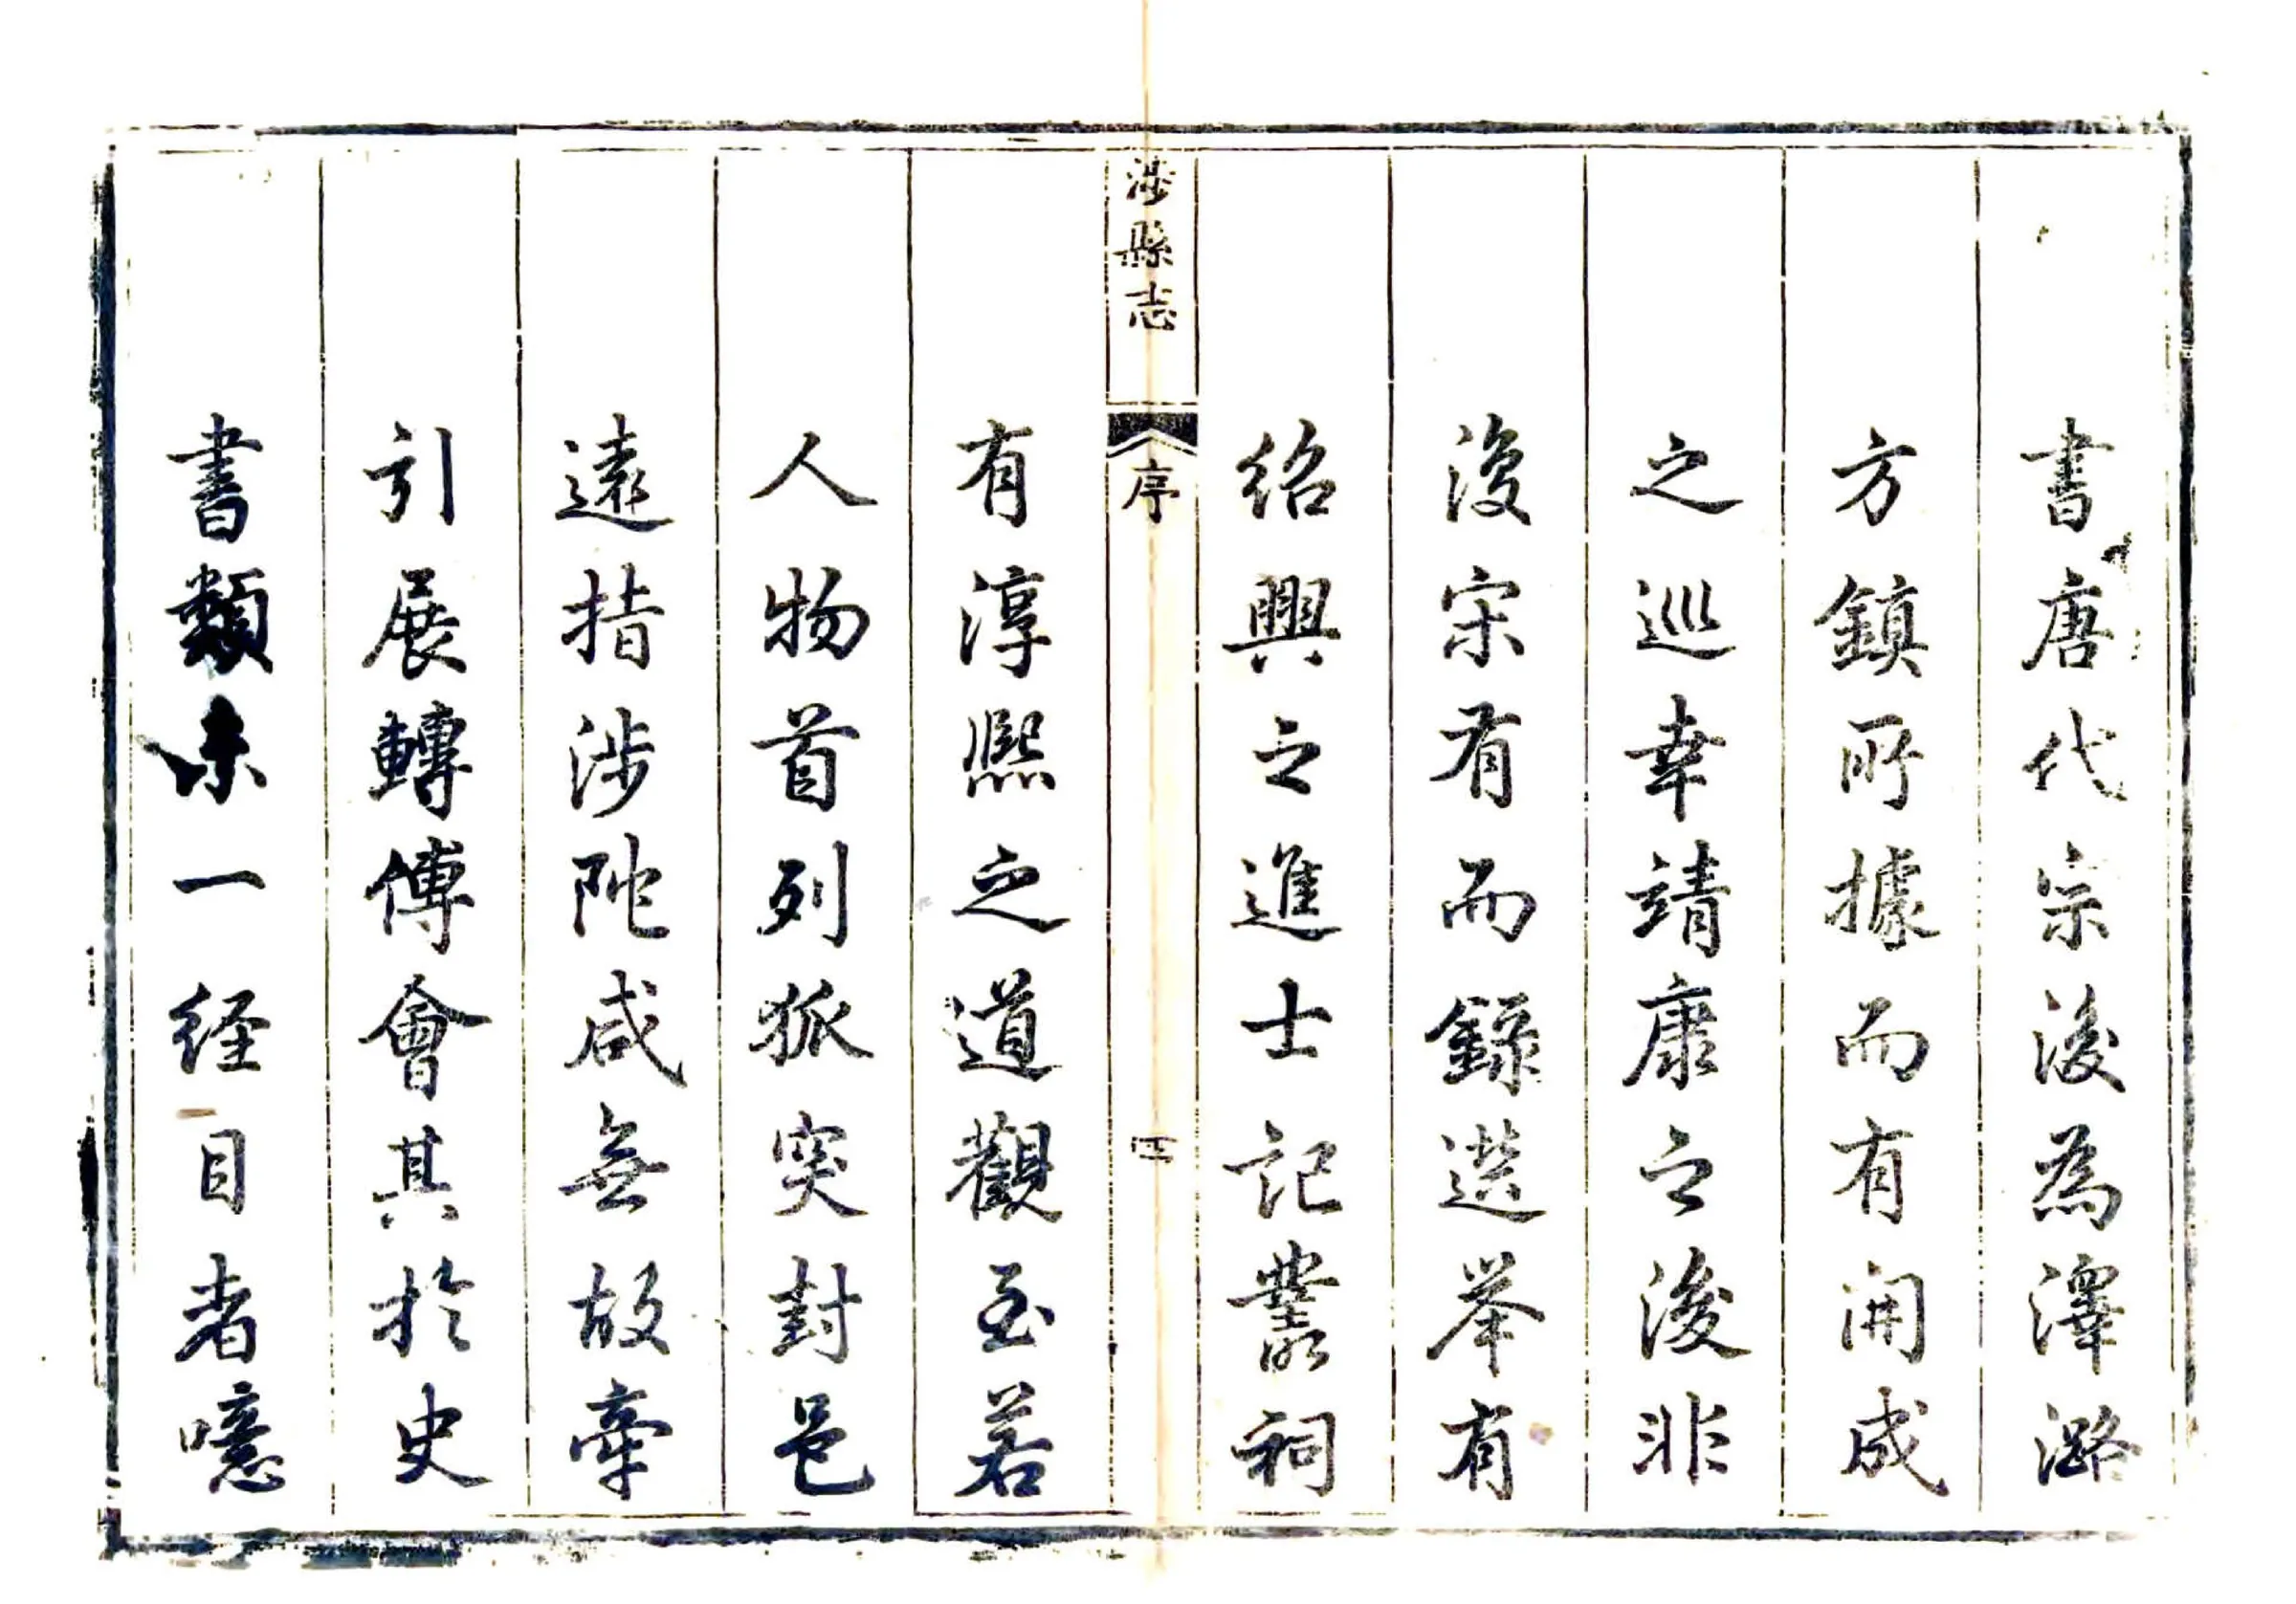 書唐代宗後為澤潞
方鎮所據而有開成
之巡幸靖康之後非
復宋有而錄選舉有
紹興之進士記叢祠
涉縣志
序
四
有淳熙之道觀至若
人物首列狐突封邑
遠指涉陀咸無故牽
引展轉傅會其於史
書類未一經目者噫